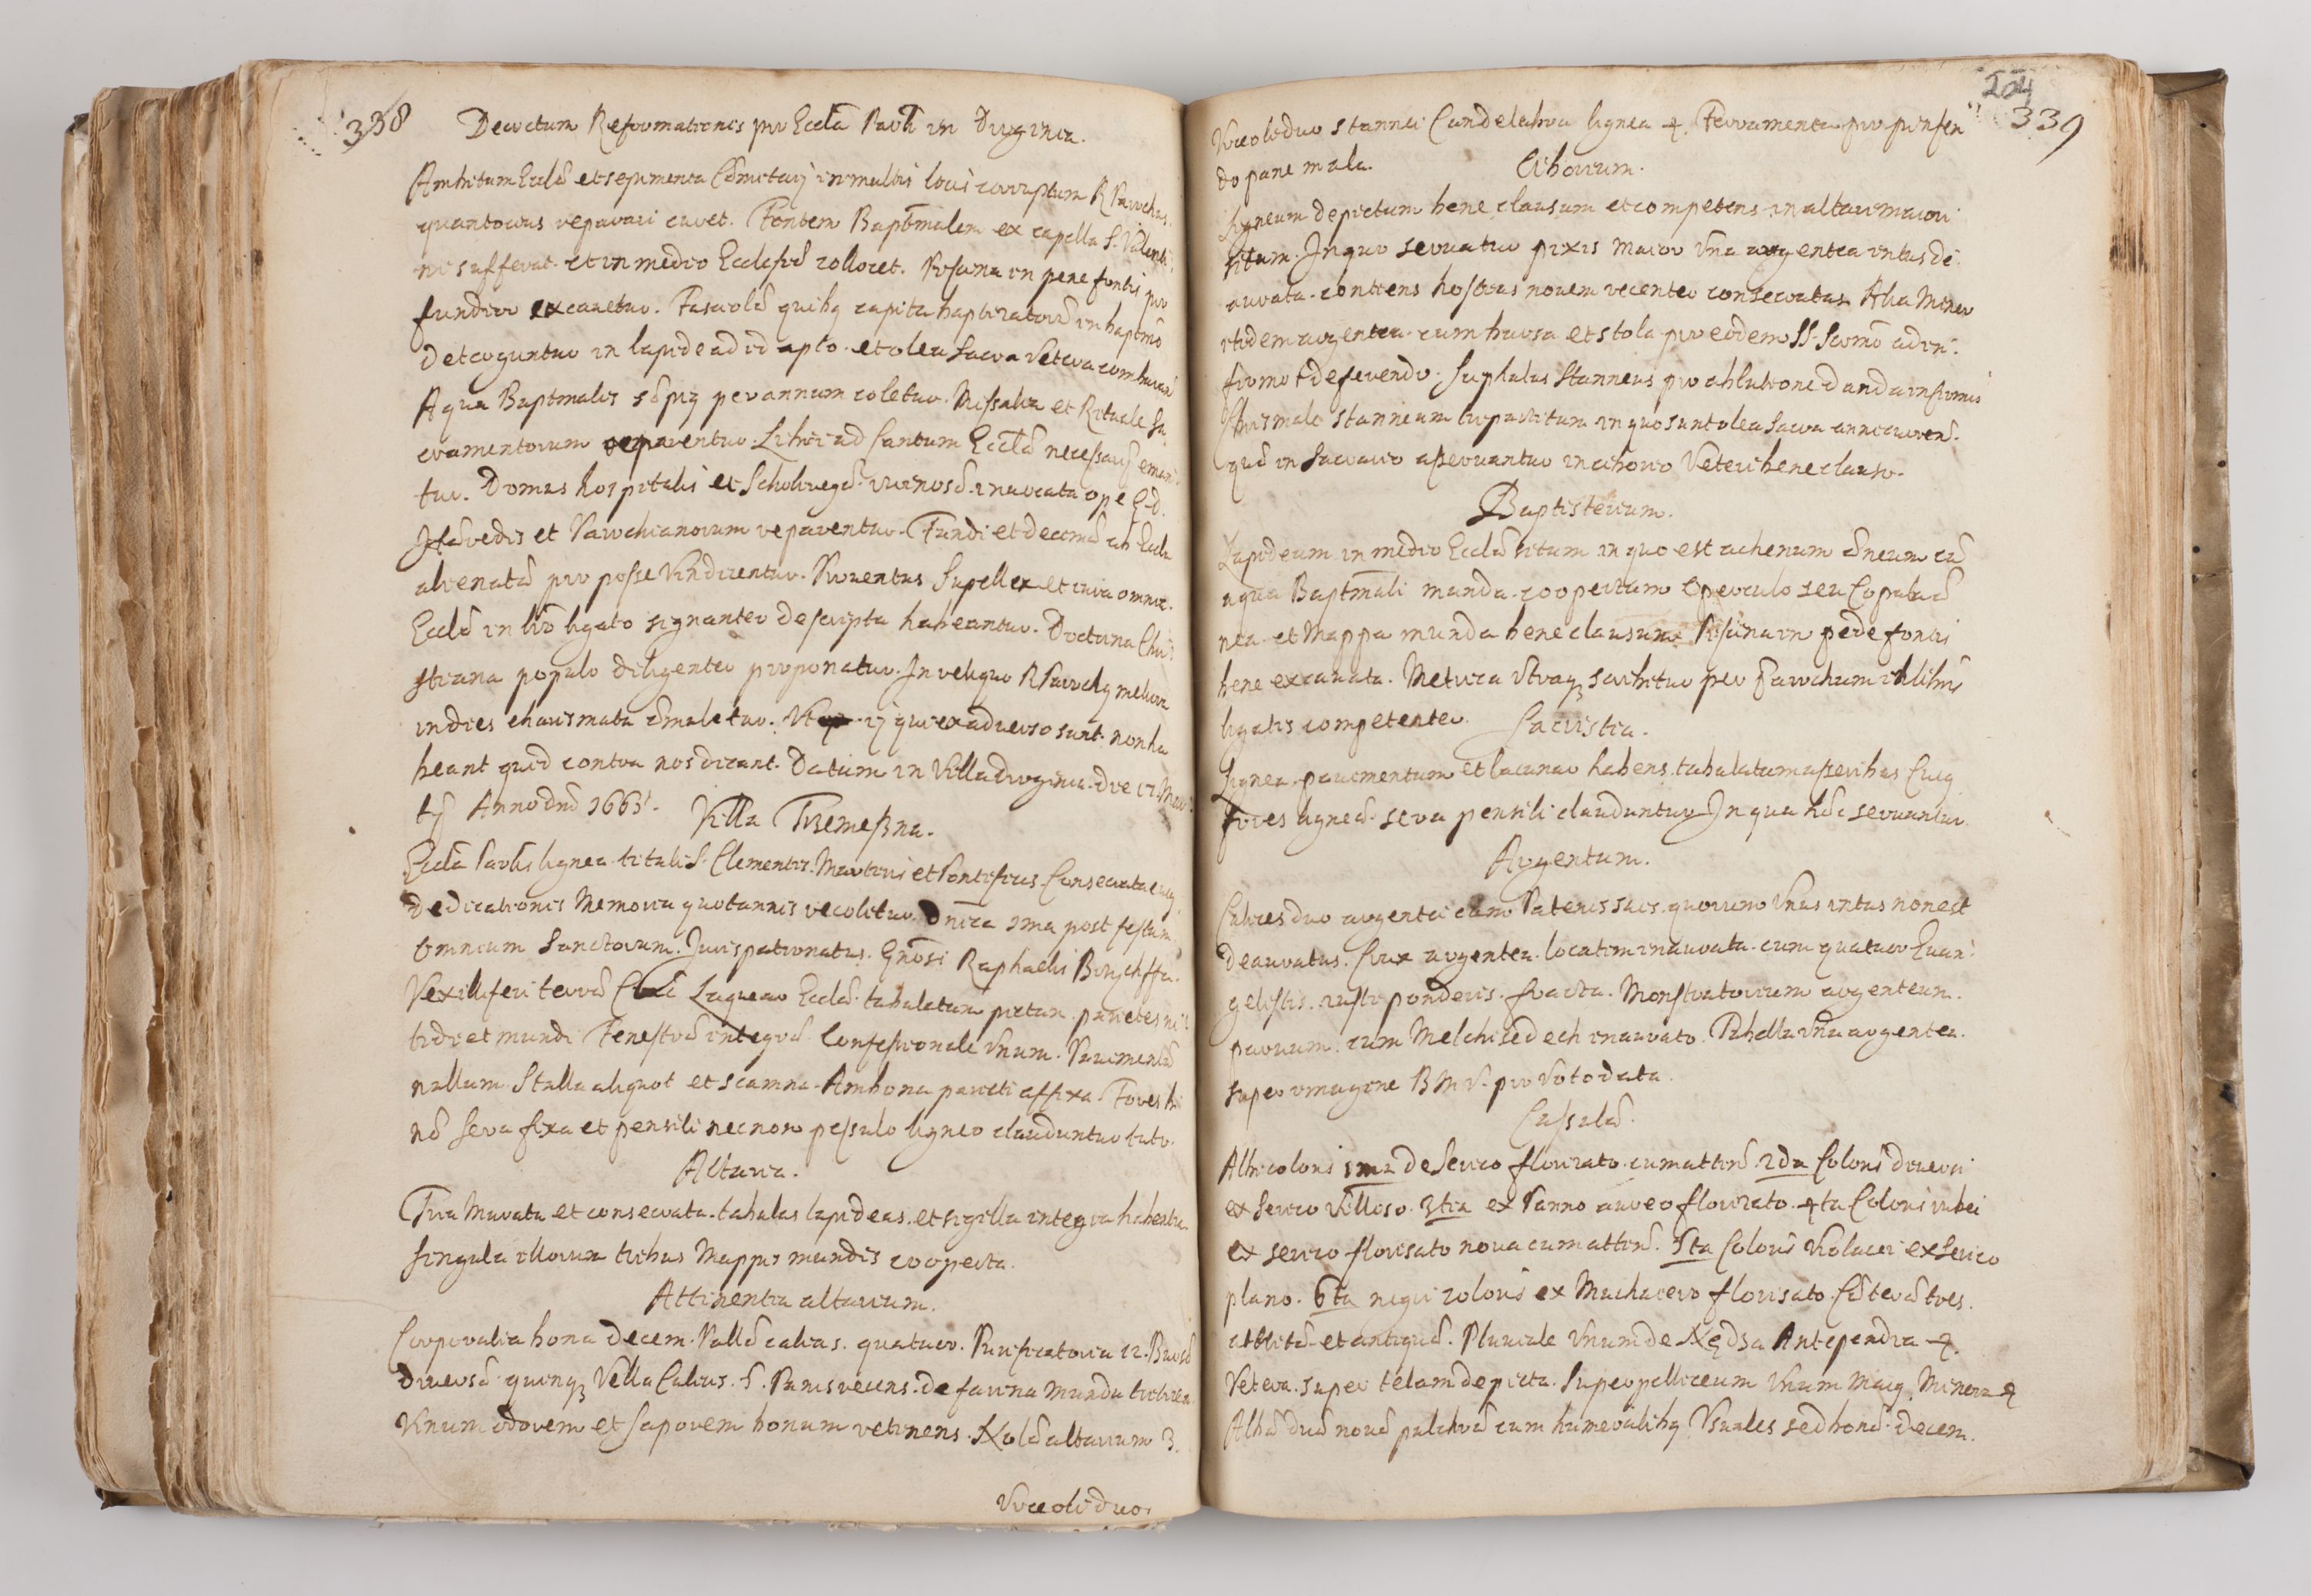 338
Decretum Reformationis pro Eccla Paroli in Druginia.
Ambitum Ecclæ et sepimenta Cæmeterij in multis locis corruptum R Parochus
quantocius reparari curet. Fontem Baptmalem ex capella S. Valenti
ni sufferat et in medio Ecclesiæ collocet. Piscina in pene fontis pro
fundior excavetur. Fasciolæ quibq capita baptizatorum in baptmo
deterguntur in lapide ad id apto et olea sacra vetera comburant
Aqua Baptmalis sæpiq per annum coletur. Missalia et Rituale Sa
cramentorum reparentur. Libri ad Cantum Ecclæ necessarij eman
tur. Domus hospitalis et Scholæ regæ ruinosæ invocata ope G.D.
Hæredis et Parochianorum reparentur. Fundi et decimæ ab Eccla
alienatæ pro posse vindicentur. Proventus Supellex et iura omnia
Ecclæ in libro ligato signanter descripta habeantur. Doctrina Chri
stiana populo diligenter proponatur. In reliquo R Parochq meliora
indies charismata æmuletur. Ut ij qui ex adverso sunt non ha
beant quid contra nos dicant. Datum in Villa Druginia die 12 Mar
tij Anno dni 1663.
Villa Trzemeszna.
Eccla Parolis lignea tituli S. Clementis Martiris et Pontificis Consecrata cuiq
dedicationis Memoria quotannis recolitur Dnica 1ma post festum
Omnium Sanctorum. Jurispatronatus. Gnosi Raphaelis
Vexilliferi terræ Laquear Ecclæ tabulatum pictum parietes ni
tidi et mundi Fenestræ integræ Confessionale Unum. Pavimentum
nullum. Stalla aliquot et scamna. Ambona parieti affixa. Fores bi
næ sera fixa et pensili necnon pessulo ligneo clauduntur tuto.
Altaria.
Tria Murata et consecrata tabulas lapideas et sigilla integra habentia
singula illorum tribus Mappis mundis cooperta.
Attinentia altarium.
Corporalia bona decem. Pallæ calicis quatuor. Purificatoria 12. Bursæ
diversæ quinqz Vella Calicis 5. Panis recens de farina munda triticea
Vinum odorem et saporem bonum retinens. Nolæ altarium 3.
Urceoli duo.
204
339
Urceoli duo stannei Candelabra lignea 4. Ferramenta pro pinsen
do pane mala.
Ciborium.
Ligneum depictum bene clausum et competens in altari maiori
situm. In quo servatur pixis maior Una argentea intus de
aurata continens hostias novem recenter consecratas Alia Minor
itidem argentea cum bursa et stola pro eodem SS. Scrmo ad in
firmos deferendo. Scyphulus Stanneus pro ablutione danda infirmis
Chrismale stanneum tripartitum in quo sunt olea sacra anni curren.
quæ in Sacrario asservantur in ciborio Veteri bene clauso.
Baptisterium.
Lapideum in medio Ecclæ situm in quo est achenum æneum cu
aqua Baptmali munda coopertum Operculo seu Copula
nea et Mappa munda bene clausum. Piscina in pede fontis
bene excavata. Metrica utraqz scribitur per Parochum in libris
ligatis competenter.
Sacristia.
Lignea pavimentum et lacunar habens tabulatum asseribus Cuiq
fores ligneæ sera pensili clauduntur In qua hæc servantur
Argentum.
Calices duo argentei cum Patenis suis quorum Unus intus non est
deauratus. Crux argentea locatim inaurata cum quatuor Evan
gelistis iusti ponderis fracta. Monstratorium argenteum
parvum cum Melchisedech inaurato. Tabella una argentea
super imagine B M V. pro voto data.
Casulæ.
Albi coloris 1ma de Serico florizato cum attin. 2da Coloris diversi
ex serico Villoso 3tia ex Panno aureo florizato 4ta Coloris rubei
ex serico florisato nova cum attin. 5ta Coloris Violacei ex serico
plano. 6ta nigri coloris ex Muchaiero florisato. Cæteræ tres
attritæ et antiquæ. Pluviale Unum de Nędza Antependia 4.
Vetera super telam depicta. Superpelliceum Unum Maiq. Minora 4
Albæ duæ novæ pulchræ cum humeralibq Usuales sed bonæ decem.